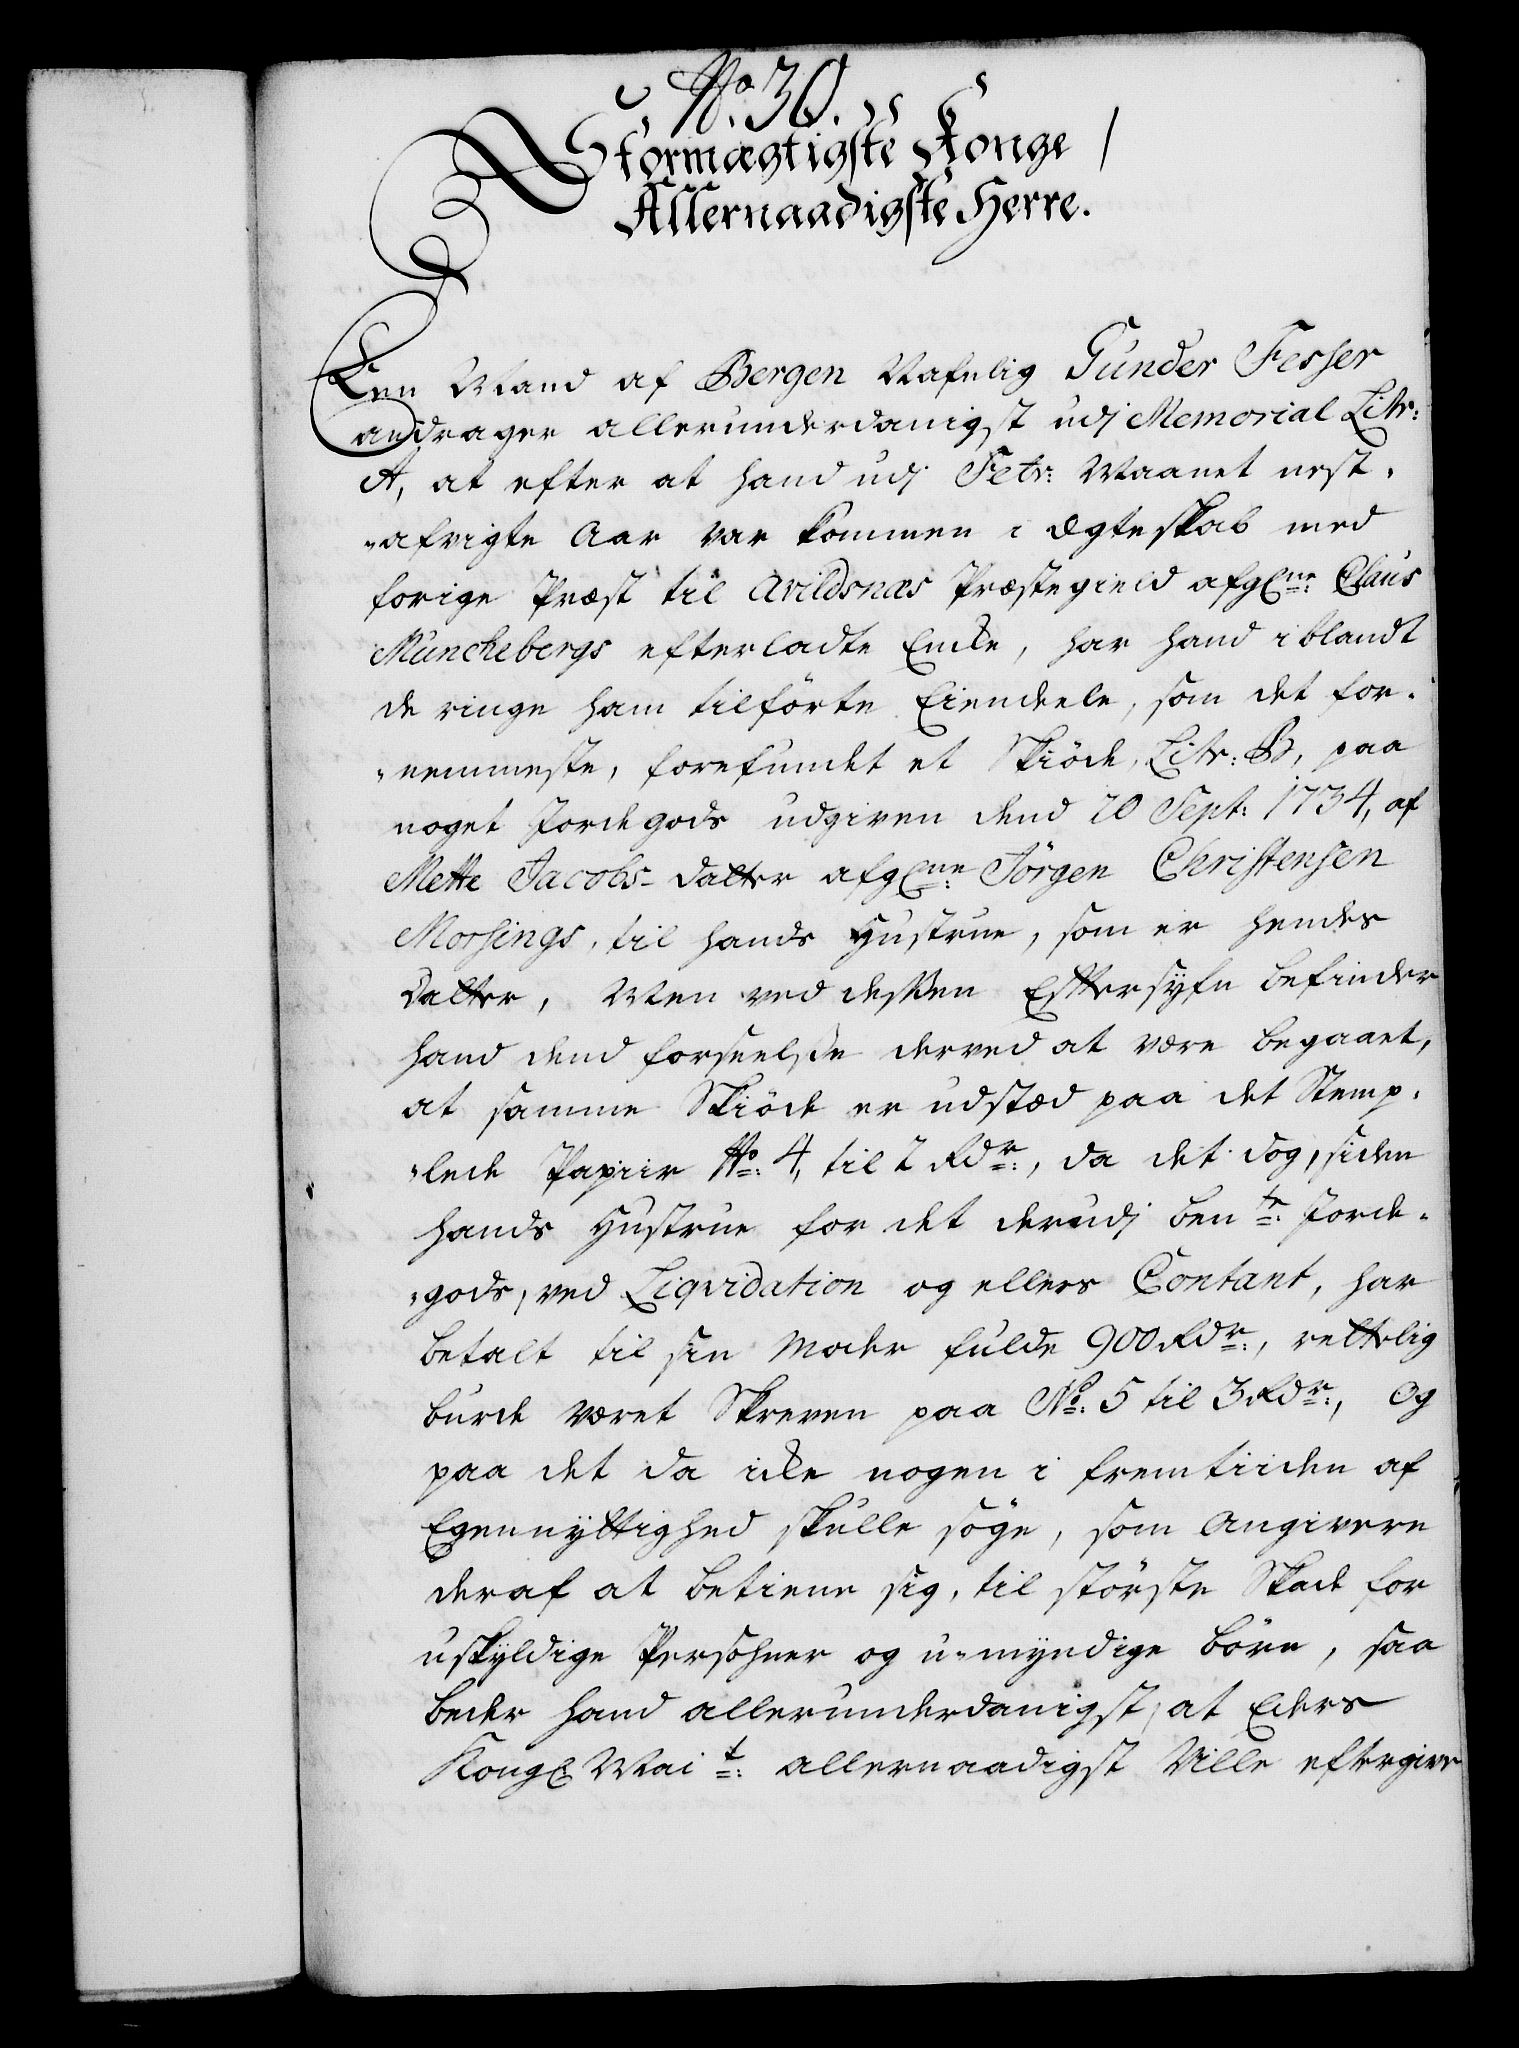 No. 30.
Stormægtigste Konge /
Allernaadigste Herre.
Een Mand af Bergen Nafnlig Gunder Fesser
andrager allerunderdanigst udj Memorial Litr:
A, at efter at hand udj Febr: Maanet nest-
-afvigte Aar var kommen i Ægteskab med
forige Præst til Avildsnæs Præstegield afgl:ne Claus
Munchebergs efterladte Encke, har hand iblandt
de ringe ham tilförte Eiendeele, som det for-
-nemmeste, forefundet et Skiöde, Litr: B, paa
noget Jordegods udgiven dend 20 Sept: 1734, af
Mette Jacobs-datter afgl:ne Jörgen Christensen
Morsings, til hands Hustrue, som er hendes
datter, Men ved dessen Efttersyfn befinder
hand dend forseelsse derved at være begaaet,
at samme Skiöde er udstæd paa det Stemp-
-lede Papiir No: 4, til 2 Rdr:, da det dog, siden
hands Hustrue for det derudj ben:te Jorde-
-gods, ved Liqvidation og ellers Contant, har
betalt til sin Moder fulde 900 Rdr:, rettelig
burde været Skreven paa No: 5 til 3 Rdr:, Og
paa det da icke nogen i fremtiiden af
Egennyttighed skulle söge, som Angivere
deraf at betiene sig, til störste Skade for
uskyldige Persohner og u-myndige börn, saa
beder hand allerunderdanigst, at Eders
Kongl Mai:t allernaadigst Ville eftergive